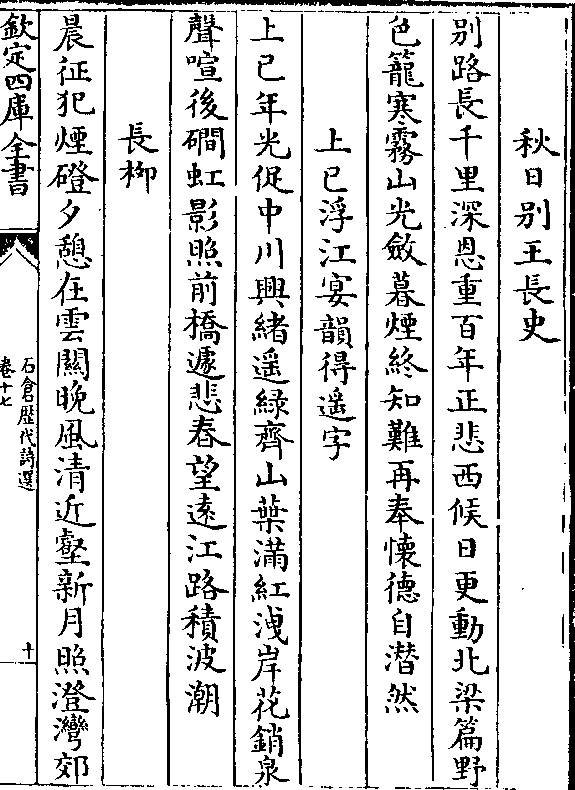 秋日别王長史
别路長千里深恩重百年正悲西候日更動北梁篇野
色籠寒霧山光斂暮煙終知難再奉懷德自潸然
上巳浮江宴韻得遥字
上巳年光促中川興緒遥緑齊山葉滿紅洩岸花銷泉
聲喧後磵虹影照前橋遽悲春望逺江路積波潮
長栁
晨征犯煙磴夕憩在雲關晚風清近壑新月照澄灣郊
欽定四庫全書
石倉歴代詩選
卷十七
十